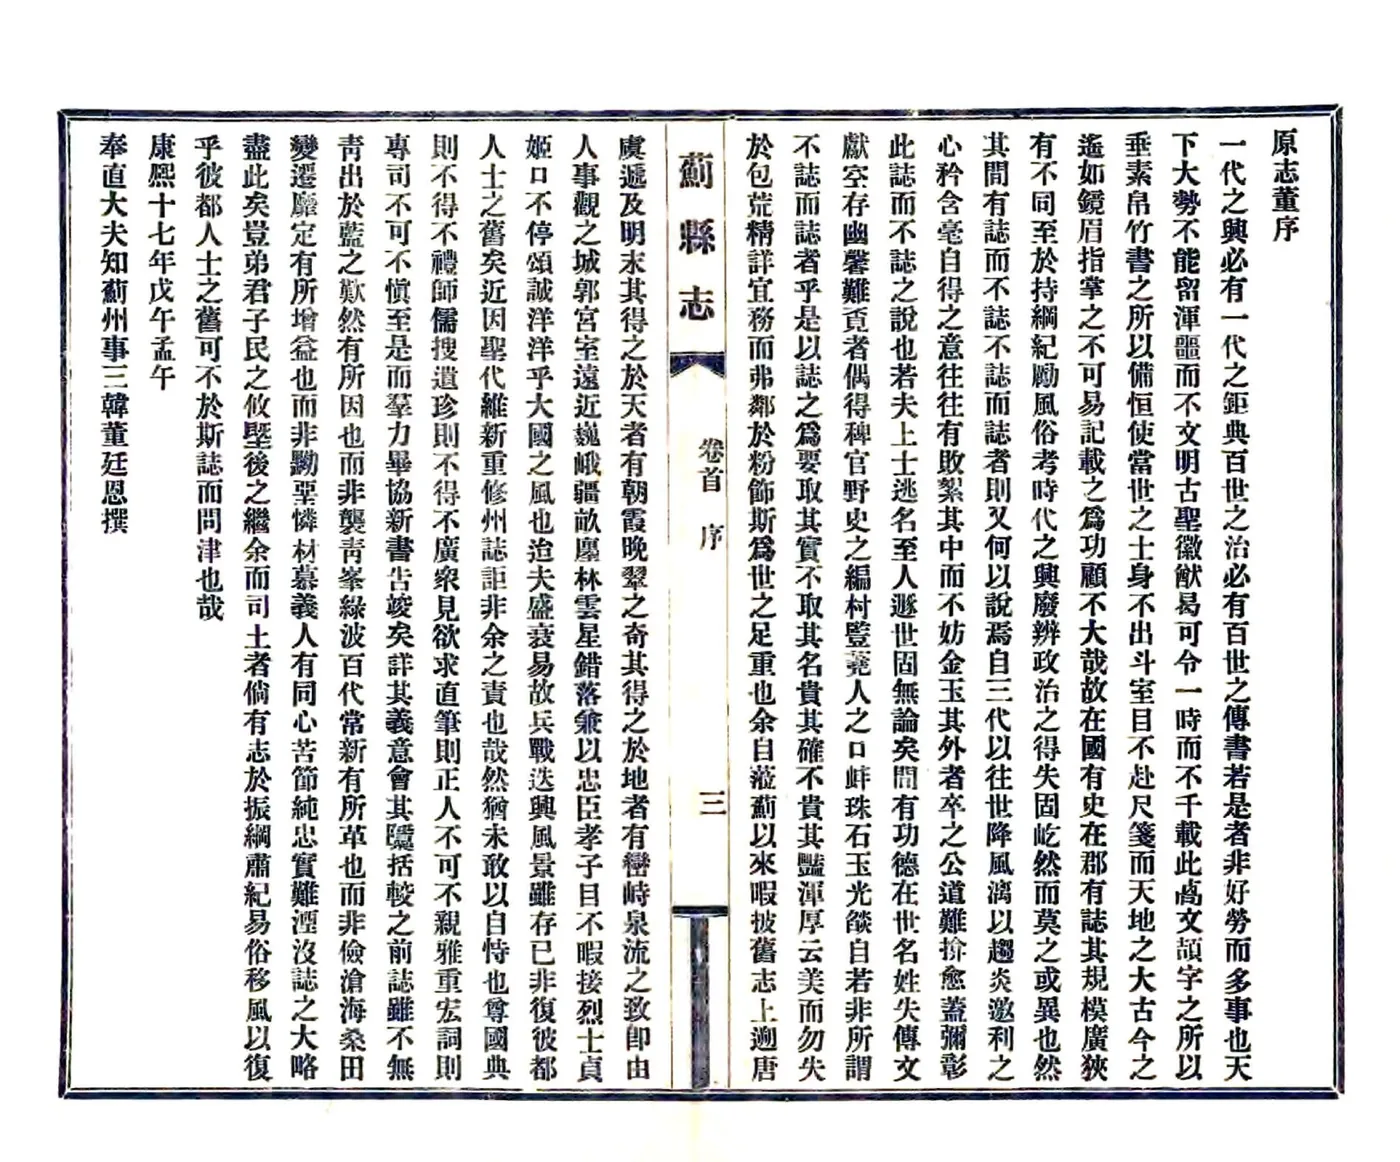 原志董序
一代之興必有一代之鉅典百世之治必有百世之傳書若是者非好勞而多事也天
下大勢不能留渾噩而不文明古聖徽猷曷可令一時而不千載此高文頡字之所以
垂素帛竹書之所以備恒使當世之士身不出斗室目不赴尺箋而天地之大古今之
遙如鏡眉指掌之不可易記載之爲功顧不大哉故在國有史在郡有誌其規模廣狹
有不同至於持綱紀勵風俗考時代之興廢辨政治之得失固屹然而莫之或異也然
其間有誌而不誌不誌而誌者則又何以說焉自三代以往世降風漓以趨炎邀利之
心矜含毫自得之意往往有敗絮其中而不妨金玉其外者卒之公道難揜愈蓋彌彰
此誌而不誌之說也若夫上士逃名至人遯世固無論矣間有功德在世名姓失傳文
獻空存幽馨難覓者偶得稗官野史之編村豎蕘人之口蚌珠石玉光燄自若非所謂
不誌而誌者乎是以誌之爲要取其實不取其名貴其確不貴其豔渾厚云美而勿失
於包荒精詳宜務而弗鄰於粉飾斯爲世之足重也余自蒞薊以來暇披舊志上遡唐
薊縣志
卷首 序
三
虞遞及明末其得之於天者有朝霞晚翠之奇其得之於地者有巒峙泉流之致卽由
人事觀之城郭宮室遠近巍峨疆畝廛林雲星錯落兼以忠臣孝子目不暇接烈士貞
姬口不停頌誠洋洋乎大國之風也迨夫盛衰易故兵戰迭興風景雖存已非復彼都
人士之舊矣近因聖代維新重修州誌詎非余之責也哉然猶未敢以自恃也尊國典
則不得不禮師儒搜遺珍則不得不廣衆見欲求直筆則正人不可不親雅重宏詞則
專司不可不愼至是而羣力畢協新書告竣矣詳其義意會其隱括較之前誌雖不無
靑出於藍之歎然有所因也而非襲靑峯綠波百代常新有所革也而非儉滄海桑田
變遷靡定有所增益也而非黝堊憐材慕義人有同心苦節純忠實難湮沒誌之大略
盡此矣豈弟君子民之攸墍後之繼余而司土者倘有志於振綱肅紀易俗移風以復
乎彼都人士之舊可不於斯誌而問津也哉
康熙十七年戊午孟午
奉直大夫知薊州事三韓董廷恩撰